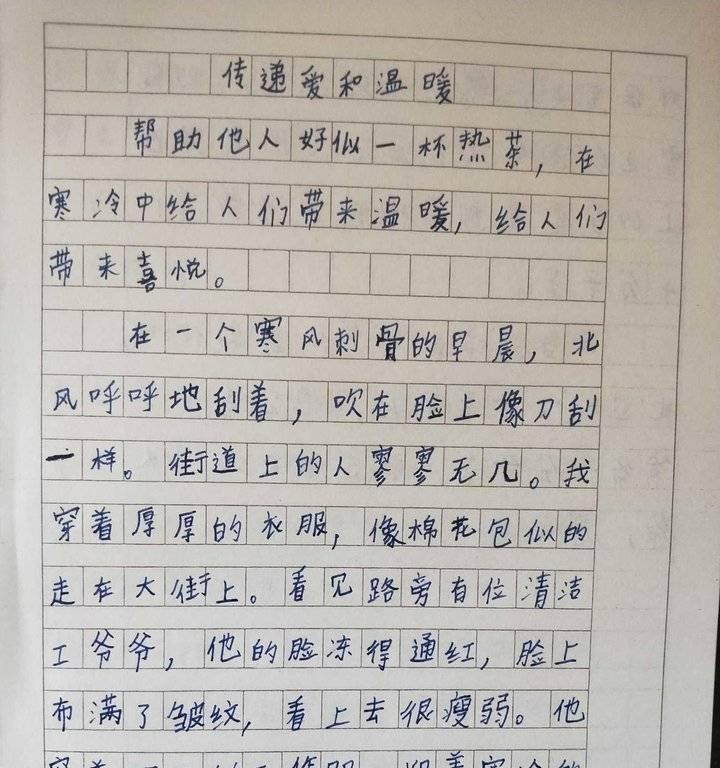 传递爱和温暖
帮助他人好似一杯热茶，在
寒冷中给人们带来温暖，给人们
带来喜悦。
在一个寒风刺骨的早晨，北
风呼呼地刮着，吹在脸上像刀刮
一样。街道上的人寥寥无几。我
穿着厚厚的衣服，像棉花包似的
走在大街上。看见路旁有位清洁
工爷爷，他的脸冻得通红，脸上
布满了皱纹，看上去很瘦弱。他